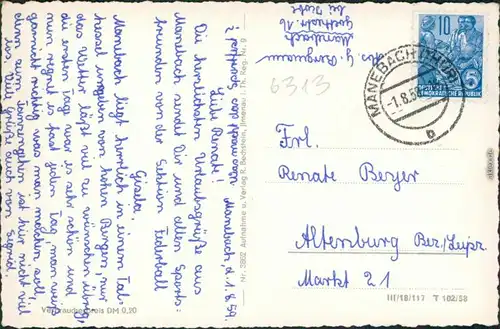 Manebach, d. 1.8.59.
Liebe Renate!
Die herzlichsten Urlaubsgrüße aus
Manebach sendet Dir und allen Sports-
freunden von der Sektion Federball
Gisela.
Manebach liegt herrlich in einem Tal-
kessel umgeben von hohen Bergen, nur
das Wetter läßt viel zu wünschen übrig,
die ersten Tage war es sehr schön und
nun regnet es fast jeden Tag, man weiß
garnicht richtig was man machen soll,
denn zum Tanzengehen ist hier nicht viel
los. Viele Grüße auch von Sigrid.
Manebach
Goethestr. 16
MANEBACH (THÜR)
-1.8.59
b
10
5
DEUTSCHE
DEMOKRATISCHE REPUBLIK
6313
Frl.
Renate Beyer
Altenburg Bez./Leipz.
Markt 21
III/18/117 T 102/58
Nr. 3802 Aufnahme u. Verlag R. Bechstein, Ilmenau i. Th. Reg. Nr. 9
Verbraucherpreis DM 0,20